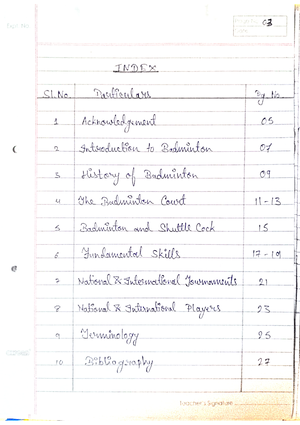 03
INDEX
Sl. No. Particulars Pg. No.
1 Acknowledgement 05
2 Introduction to Badminton 07
3 History of Badminton 09
4 The Badminton Court 11-13
5 Badminton and Shuttle Cock 15
6 Fundamental Skills 17-19
7 National & International Tournaments 21
8 National & International Players 23
9 Terminology 25
10 Bibliography 27
Teacher's Signature